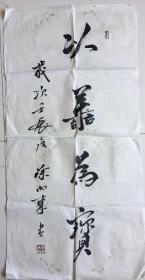 以善為寶
歲次壬辰
徐
書